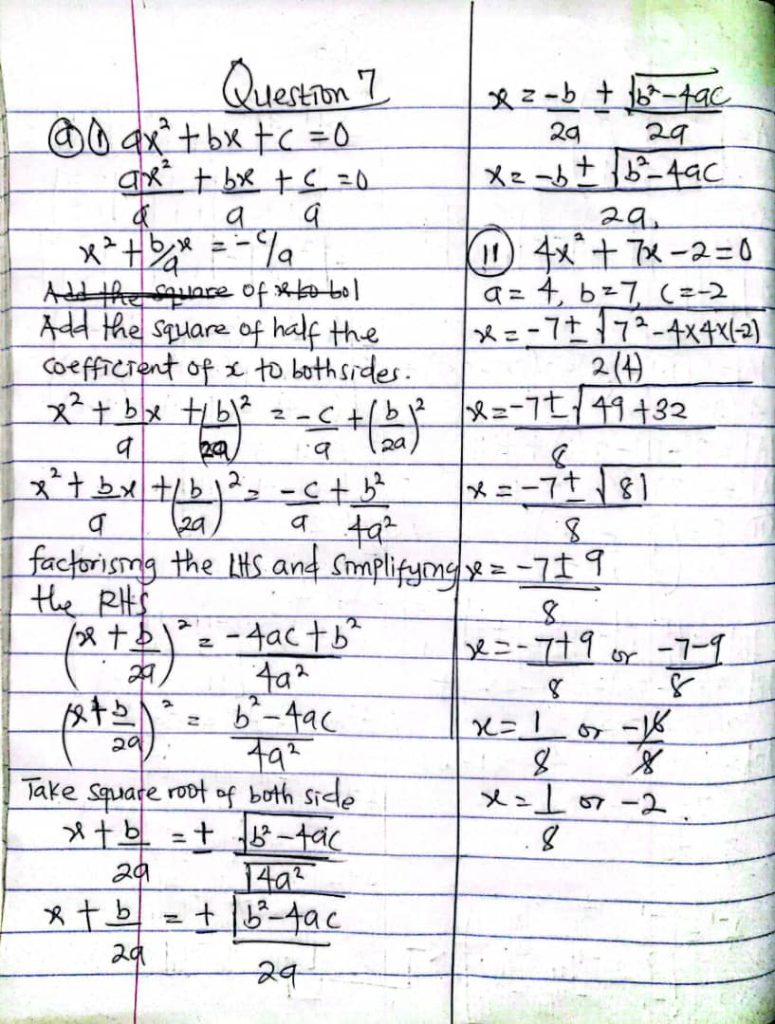 Question 7
(a) (i) ax² + bx + c = 0
ax²/a + bx/a + c/a = 0
x² + b/a x = -c/a
Add the square of x to bol
Add the square of half the
coefficient of x to both sides.
x² + b/a x + (b/2a)² = -c/a + (b/2a)²
x² + b/a x + (b/2a)² = -c/a + b²/4a²
factorising the LHS and simplifying
the RHS
(x + b/2a)² = -4ac + b²/4a²
(x + b/2a)² = b² - 4ac/4a²
Take square root of both side
x + b/2a = ± √b² - 4ac/√4a²
x + b/2a = ± √b² - 4ac/2a
x = -b/2a ± √b² - 4ac/2a
x = -b ± √b² - 4ac/2a,
(ii) 4x² + 7x - 2 = 0
a = 4, b = 7, c = -2
x = -7 ± √7² - 4x4x(-2)/2(4)
x = -7 ± √49 + 32/8
x = -7 ± √81/8
x = -7 ± 9/8
x = -7 + 9/8 or -7 - 9/8
x = 1/8 or -16/8
x = 1/8 or -2